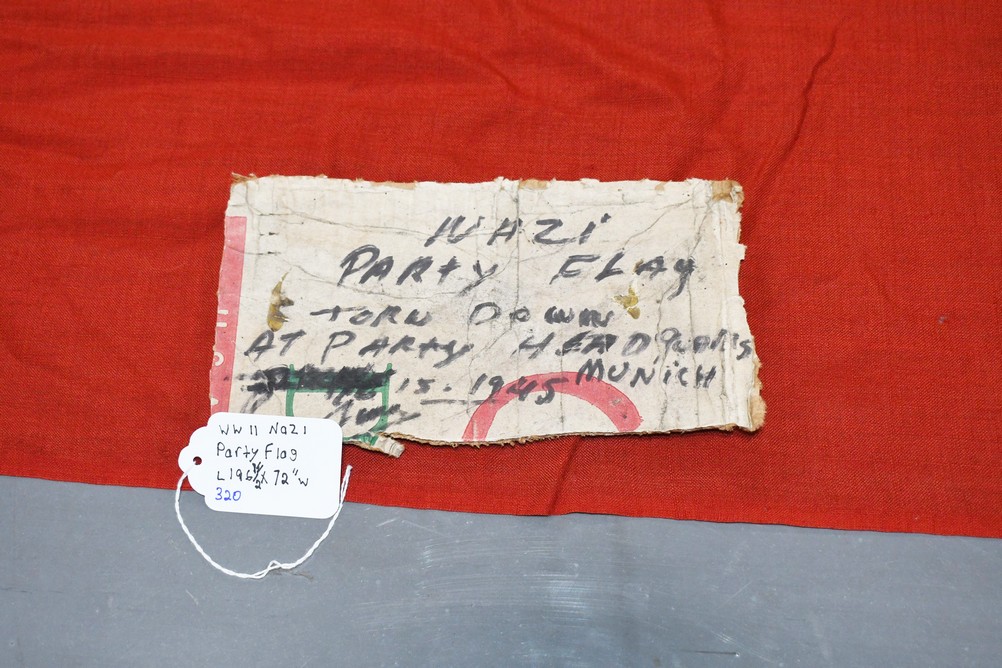 NAZi
PARty FLAg
TORN DOWN
AT PARty HEADQuaRtS
15 - 1945 MUNiCH
WW II Nazi
Party Flag
L196 1/2 x 72" W
320